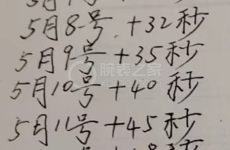 5月8号 +32秒
5月9号 +35秒
5月10号 +40秒
5月11号 +45秒
腕表之家